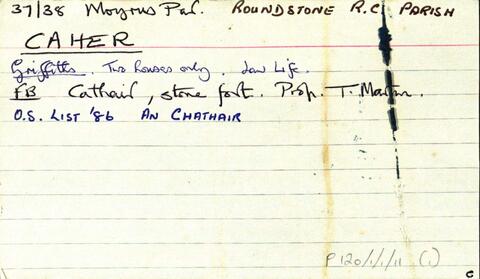 37/38 Moyrus Par. ROUNDSTONE R.C. PARISH
CAHER
Griffiths. Two houses only. Low Life.
FB Cathair, stone fort. Prop. T. Martin.
O.S. LIST '86 AN CHATHAIR
P120/1/1/11 (1)
c